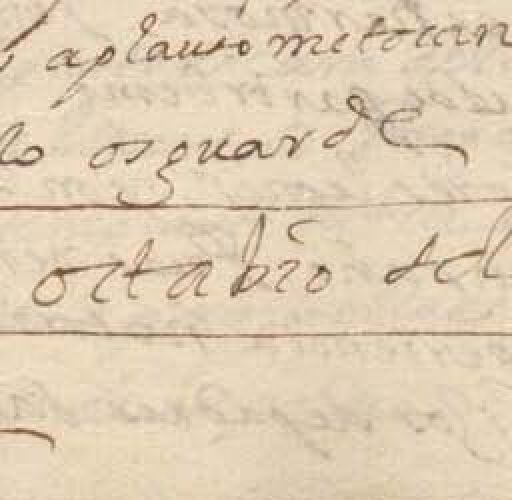 aplauso me tocan
lo os guarde
octabio del